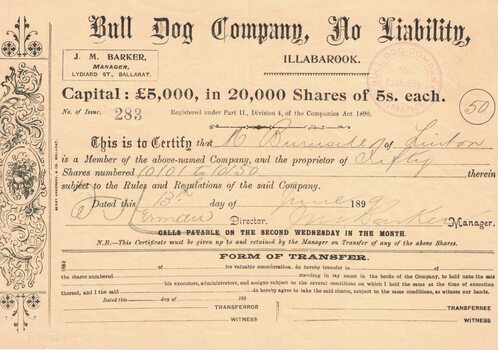 Bull Dog Company, No Liability,
ILLABAROOK.
J. M. BARKER,
MANAGER,
LYDIARD ST., BALLARAT.
Capital: £5,000, in 20,000 Shares of 5s. each.
No. of Issue. 283
Registered under Part II., Division 4, of the Companies Act 1890.
50
This is to Certify that Burnside of Linton
is a Member of the above-named Company, and the proprietor of Fifty
Shares numbered 10101 to 10150 therein
subject to the Rules and Regulations of the said Company.
Dated this 13th day of June 189
Director. J M Barker Manager.
CALLS PAYABLE ON THE SECOND WEDNESDAY IN THE MONTH.
N.B.—This Certificate must be given up to and retained by the Manager on Transfer of any of the above Shares.
FORM OF TRANSFER.
of for valuable consideration, do hereby transfer to of
the shares numbered standing in my name in the books of the Company, to hold unto the said
his executors, administrators, and assigns subject to the several conditions on which I held the same at the time of execution
thereof, and I the said do hereby agree to take the said shares, subject to the same conditions, as witness our hands.
Dated this day of 189
TRANSFERROR TRANSFEREE
WITNESS WITNESS